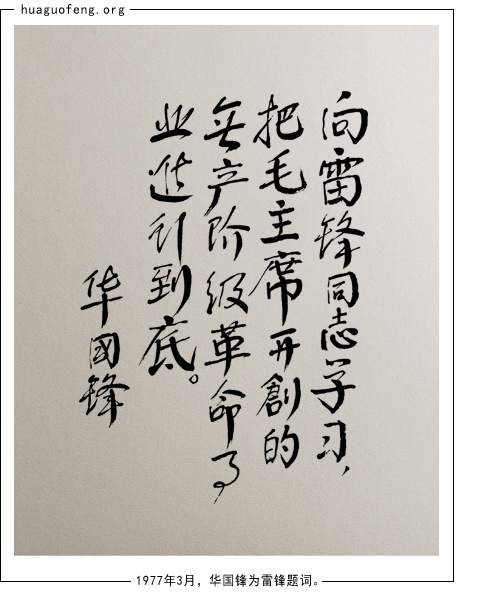 huaguofeng.org
向雷锋同志学习，
把毛主席开創的
無产阶级革命事
业進行到底。
华國锋
1977年3月，华国锋为雷锋题词。